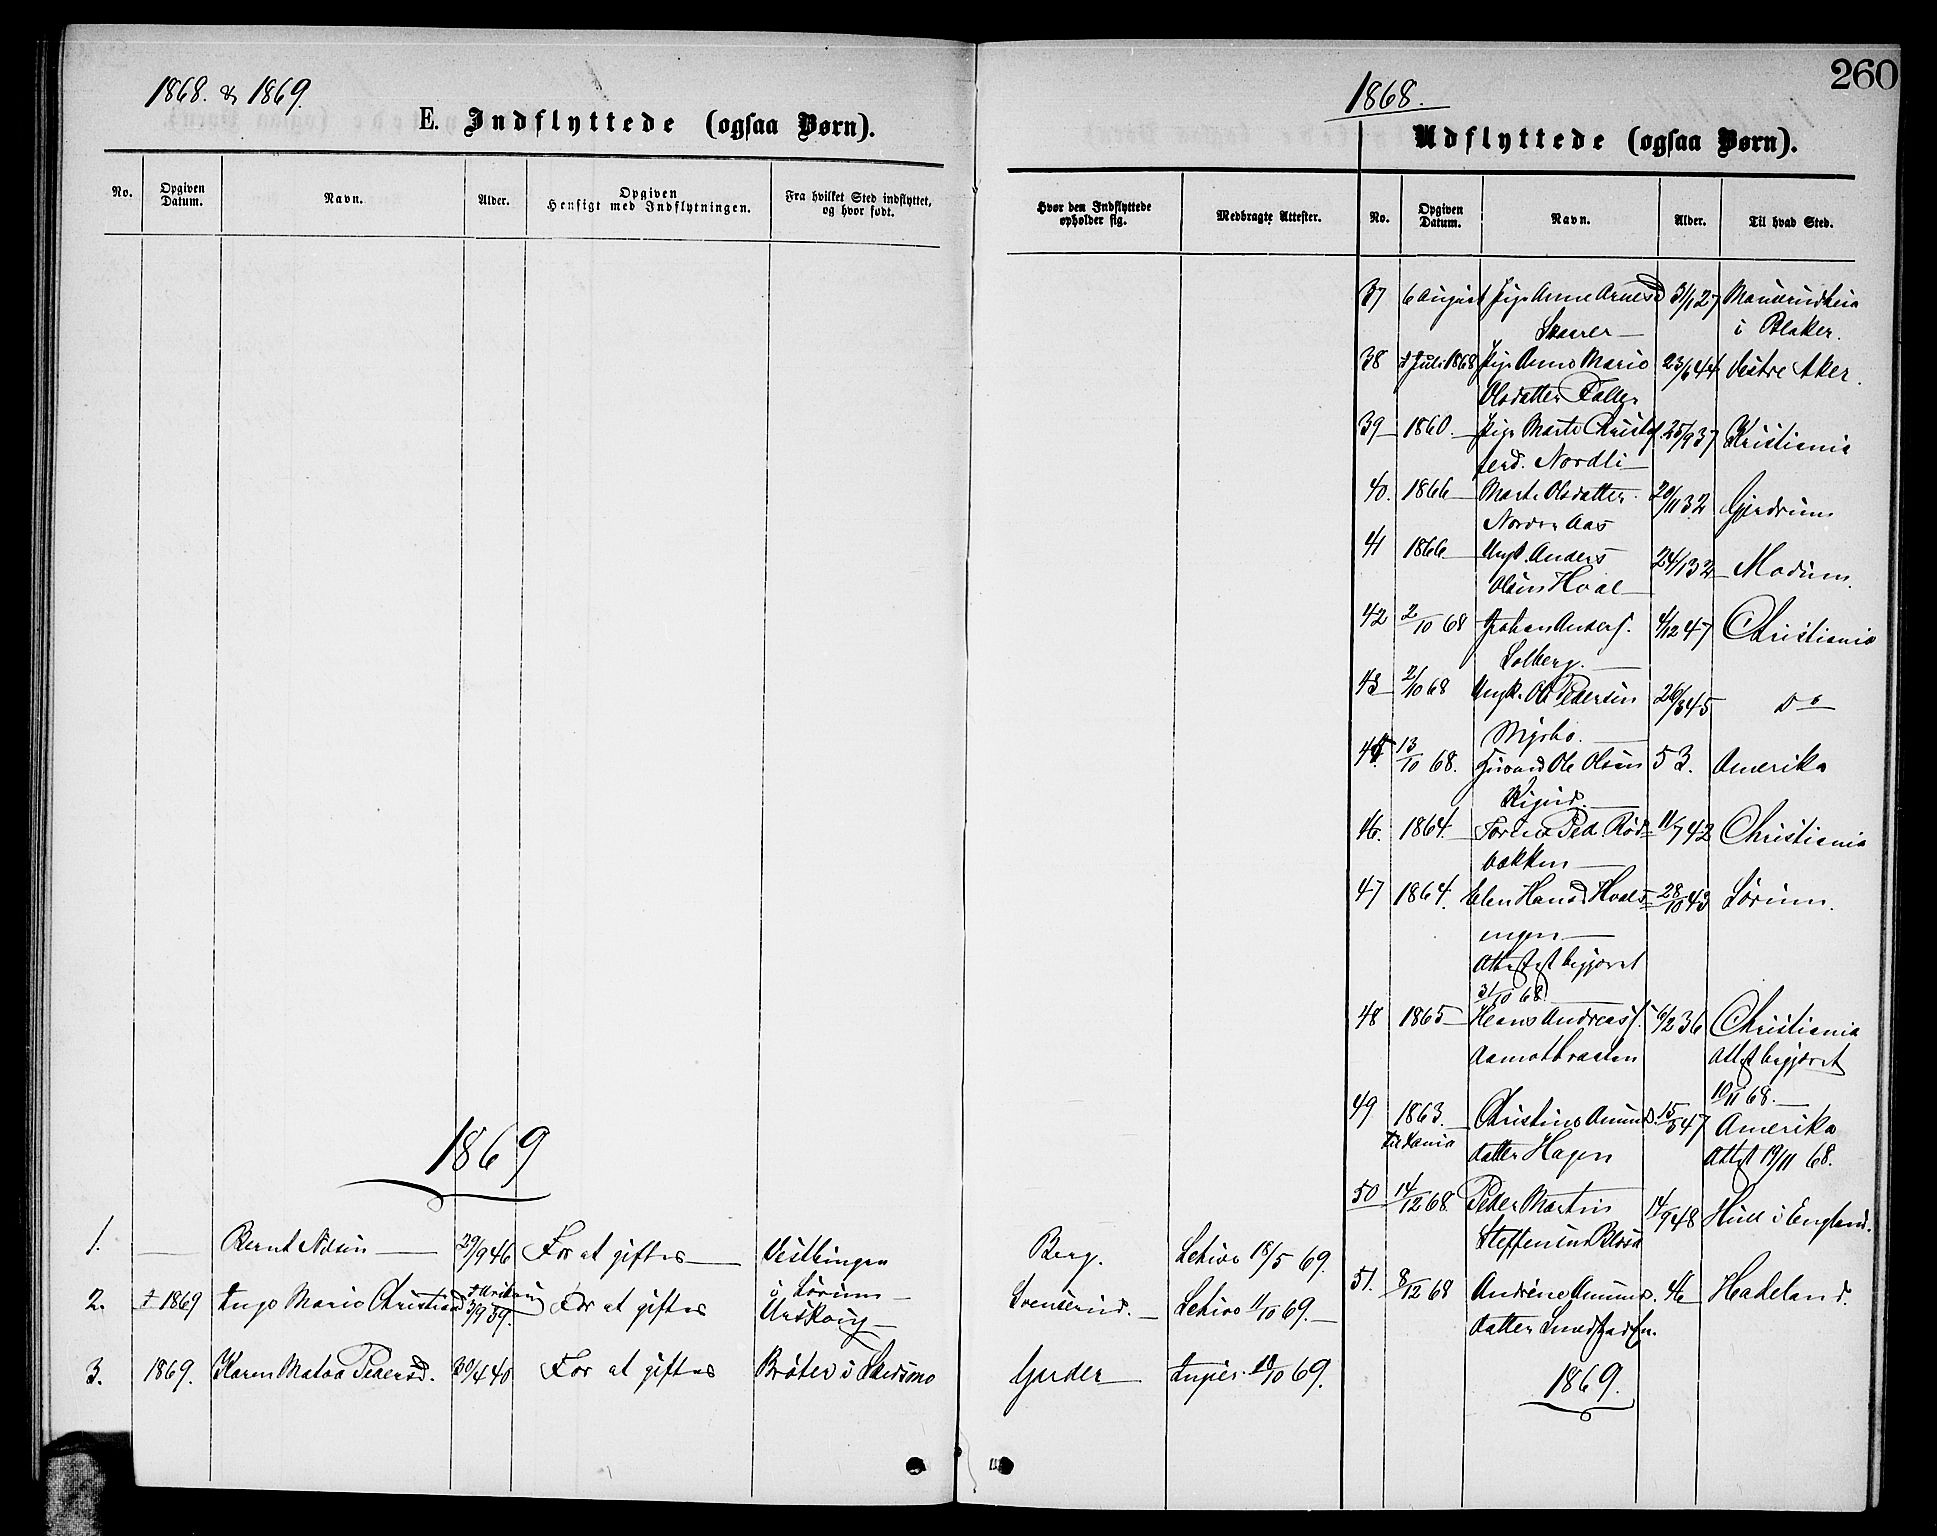 1868. & 1869.
E. Indflyttede (ogsaa Børn).
No.
Opgiven Datum.
Navn.
Alder.
Opgiven Hensigt med Indflytningen.
Fra hvilket Sted indflyttet, og hvor født.
1869
1. Bernt Nilsen 29/9 46 For at giftes Vestbingen
i Sørum
2. 1869 Inge Marie Christiansd 3/9 39 For at giftes Urskoug
3. 1869. Karen Matea Pedersd. 30/4 40 For at giftes Bråter i Skedsmo
260
1868.
Udflyttede (ogsaa Børn).
Hvor den Indflyttede opholder sig.
Medbragte Attester.
No.
Opgiven Datum.
Navn.
Alder.
Til hvad Sted.
37 6 August Pige Anne Arnesd 31/1 27
Skarer i Blaker.
38 Juli 1868 Pige Anne Marie 23/6 44 Vestre Aker.
Olsdatter
39 1860. Pige Marte Christof 25/9 37 Kristiania
ferd. Nordli
40. 1866 Marte Olsdatter 20/11 32 Gjerdrum
Nordre Aas
41 1866. Ungk. Anders 24/1 32 Modum.
Olsen Hval
42 2/10 68 Johan Anders. 4/12 47 Christiania
Solberg.
43 2/10 68 Ungk. Ole Pedersen 26/8 45 do
Myrbo.
13/10 68. Ole Olsen 53. Amerika
46. 1864. Ped. Rød 11/7 42 Christiania
bakken
47 1864. Elen Hansd Hvals 28/10 43 Sørum.
engen
Attest begjæret
31/10 68
48 1865 Hans Andreass. 6/2 36 Christiania
Aamotbraaten Attest begjæret
10/11 68.
49 1863. Christine Amunds. 15/5 47 Amerika
datter Hagen Attest 19/11 68.
50 14/12 68 Peder Martin 14/9 48 Hull i England.
Steffensen
Berg. 18/5 69.
51. 8/12 68 Andrine Amunds. 46 Hadeland.
Svenserud. 11/10 69. datter
Gjerder 10/10 69.
1869.